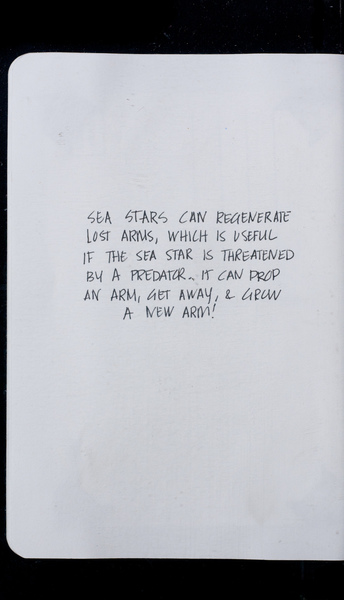 SEA STARS CAN REGENERATE
LOST ARMS, WHICH IS USEFUL
IF THE SEA STAR IS THREATENED
BY A PREDATOR.. IT CAN DROP
AN ARM, GET AWAY, & GROW
A NEW ARM!